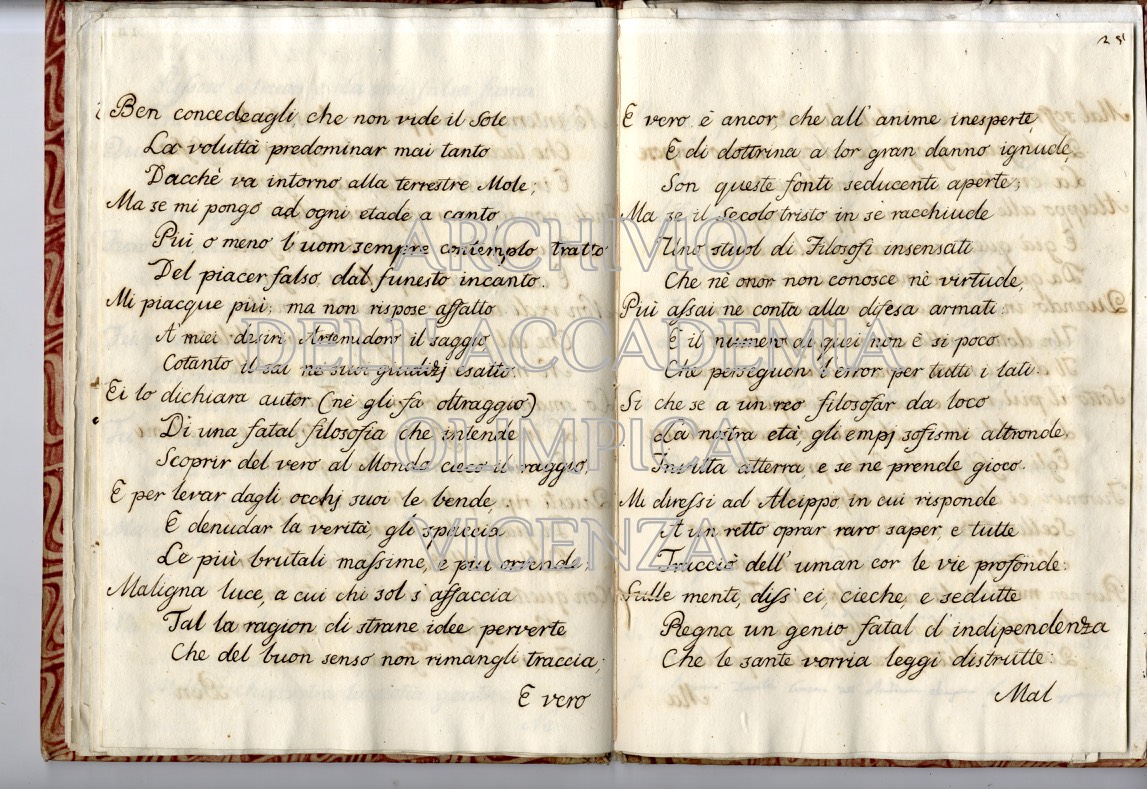 Ben concedeagli, che non vide il Sole
La voluttà predominar mai tanto
Dacchè va intorno alla terrestre Mole;
Ma se mi pongo ad ogni etade a canto
Più o meno l'uom sempre contemplo tratto
Del piacer falso dal funesto incanto.
Mi piacque più, ma non rispose affatto
A' miei disiri Artemidoro il saggio
Cotanto il sai ne suoi giudizj esatto.
Ei lo dichiara autor (nè gli fa oltraggio)
Di una fatal filosofia che intende
Scoprir del vero al Mondo cieco il raggio,
E per levar dagli occhj suoi le bende,
E denudar la verità, gli spaccia
Le più brutali massime, e più orrende
Maligna luce, a cui chi sol s'affaccia
Tal la ragion di strane idee perverte
Che del buon senso non rimangli traccia;
E vero
25
E vero è ancor, che all'anime inesperte,
E di dottrina a lor gran danno ignude,
Son queste fonti seducenti aperte;
Ma se il Secolo tristo in sè racchiude
Uno stuol di Filosofi insensati
Che nè onor non conosce nè virtude,
Più assai ne conta alla difesa armati:
E il numero di quei non è sì poco
Che perseguon l'error per tutti i lati.
Sì che se a un reo filosofar da loco
La nostra età, gli empj sofismi altronde
Invitta atterra, e se ne prende gioco.
Mi diressi ad Alcippo, in cui risponde
A un retto oprar raro saper, e tutte
Tracciò dell'uman cor le vie profonde:
Sulle menti, diss'ei, cieche, e sedutte
Regna un genio fatal d'indipendenza
Che le sante vorria leggi distrutte:
Mal
ARCHIVIO
DELL'ACCADEMIA
OLIMPICA
VICENZA